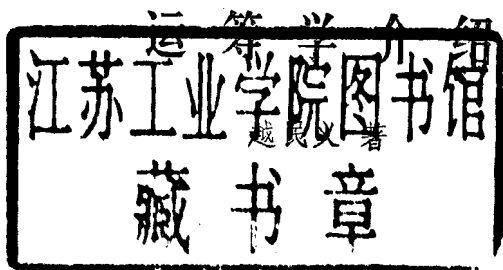 运筹学介绍
江苏工业学院图书馆
越民义 著
藏书章